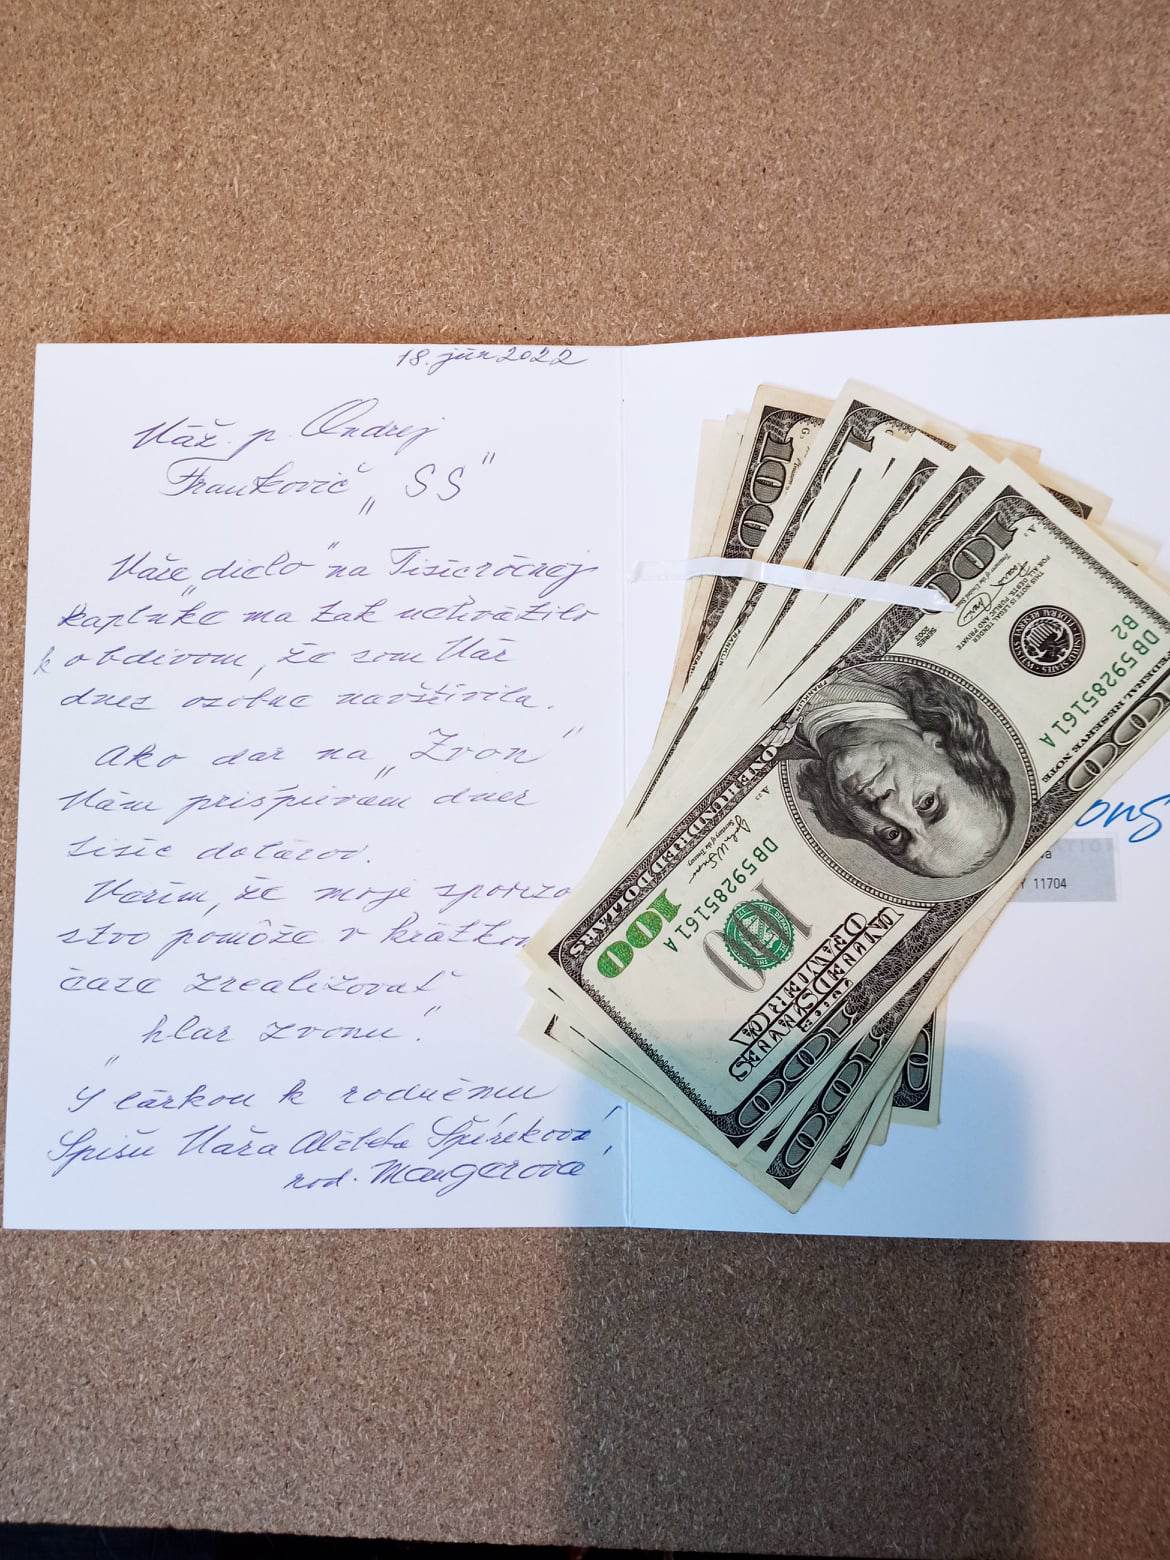 18. jún 2022
Váž. p. Ondrej
Frankovič „SS"
Vaše „dielo" na Tisícročnej
kaplnke ma tak uchvátilo
k obdivom, že som Vás
dnes osobne navštívila.
Ako dar na „Zvon"
Vám prispievam dnes
tisíc dolárov.
Verím, že moje sponzo
stvo pomôže v krátkom
čase zrealizovať
„hlas zvonu".
S láskou k rodnému
Spišu Vaša Alžbeta Špireková,
rod. Mangerova
100
100
100
THIS NOTE IS LEGAL TENDER
FOR ALL DEBTS, PUBLIC AND PRIVATE
SERIES
DB 59285161 A
B2
FEDERAL RESERVE NOTE
THE UNITED STATES OF AMERICA
FRANKLIN
ONE HUNDRED DOLLARS
Secretary of the Treasury
DB 59285161 A
100
100
ons
va
Y 11704